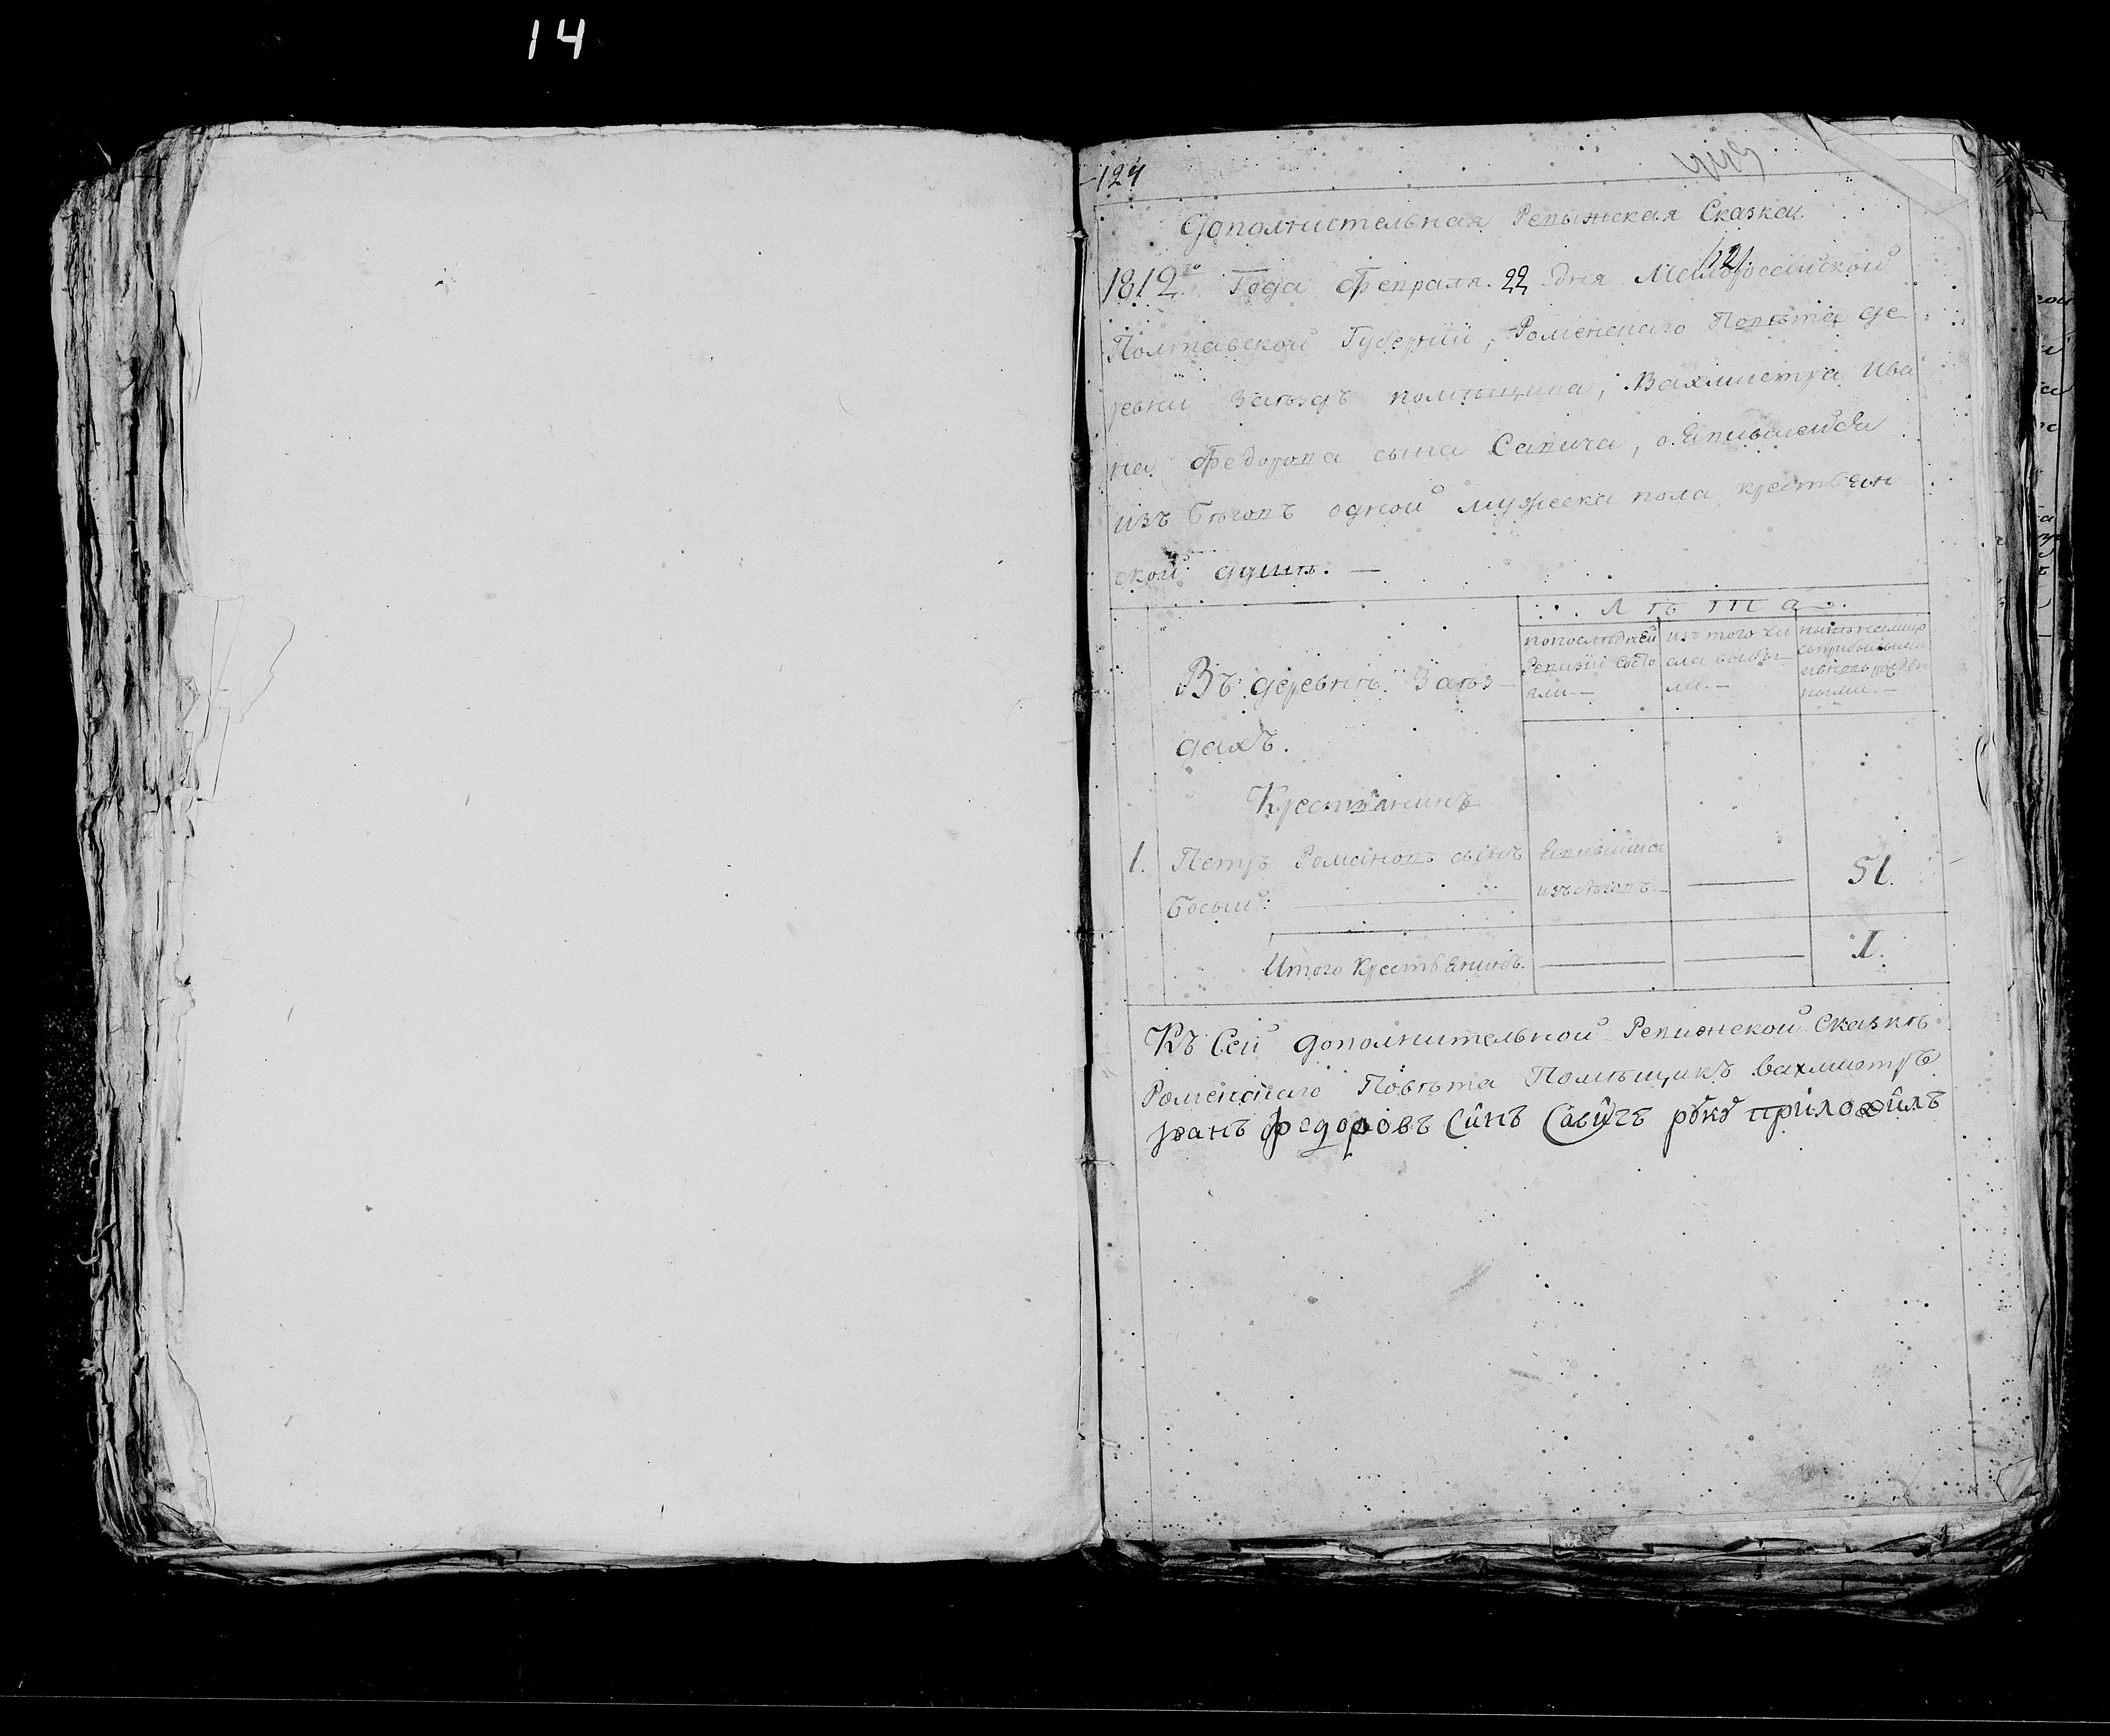 14
124
Дополнительная Ревижская Сказка.
121
1812го Года Февраля 22 дня Малороссійской
Полтавской Губерніи, Роменскаго Повѣта де
ревни Заѣздъ помѣщика, Вахмистра Ива
на Федорова сына Савича, о явившейся
изъ бѣговъ одной мужеска пола крестьян
ской душѣ. —
Лѣта
Въ деревнѣ Заѣз-
дахъ.
попослѣдней
Ревизіи состо
яли. —
изъ того чи
сла выбы-
ли. —
нынѣ налицо
Крестьянинъ
1. Петръ Романовъ сынъ
Босый: —
явившійся
изъ бѣговъ — — 51.
Итого Крестьянинъ. — — 1.
Къ Сей дополнительной Ревижской Сказкѣ
Роменскаго Повѣта Помѣщикъ вахмистръ
Іванъ Федоровъ Синъ Савичъ руку приложилъ